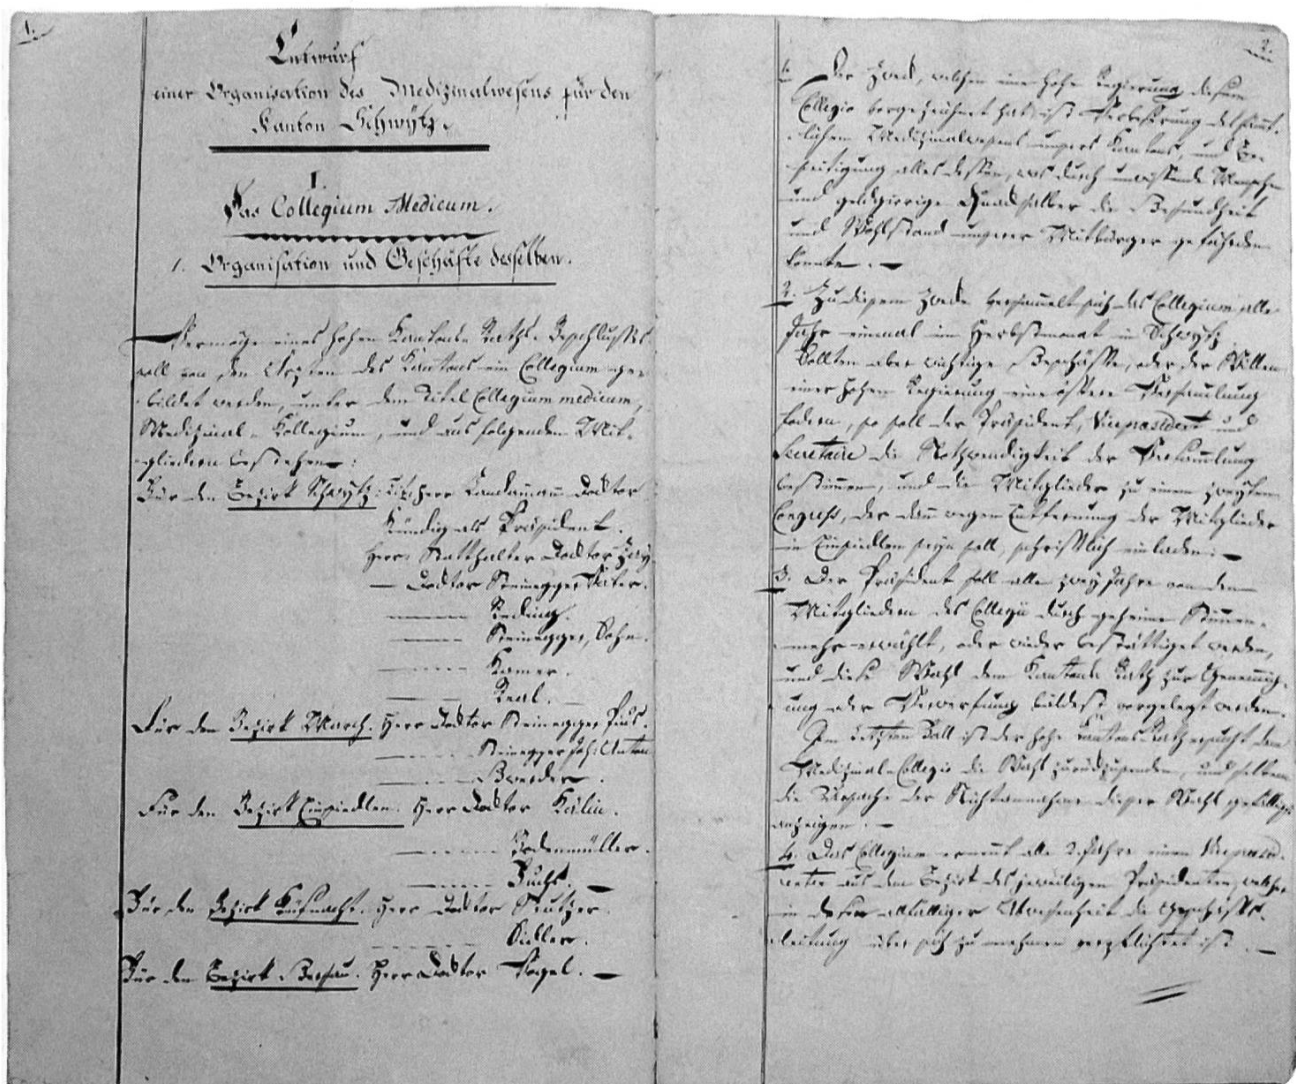 1.
Entwurf
einer Organisation des Medizinalwesens für den
Kanton Schwytz.
I.
Das Collegium Medicum.
1. Organisation und Geschäfte desselben.
Vermöge eines hohen Kantons Raths Beschlusses
soll von den Ärzten des Kantons ein Collegium ge-
bildet werden, unter dem Titel Collegium medicum,
Medizinal-Kollegium, und aus folgenden Mit-
gliedern bestehen:
Für den Bezirk Schwytz. Herr Landammann Doktor
Kündig als Präsident.
Herr Statthalter Doktor Zay
— Doktor Steinegger Vater.
Reding.
Steinegger, Sohn.
Kamer.
Real.
Für den Bezirk March. Herr Doktor Steinegger Pius.
Steinegger Joh. Anton
Für den Bezirk Einsiedlen. Herr Doktor Kälin.
Bodenmüller.
Fuchs.
Für den Bezirk Küßnacht. Herr Doktor Stutzer.
Sidler.
Für den Bezirk Gersau. Herr Doktor
2.
1. Der Zweck, welchen eine hohe Regierung diesem
Collegio vorgezeichnet hat, ist Verbesserung des sämt-
lichen Medizinalwesens unsers Kantons, und Be-
seitigung alles dessen, was durch unwissende Menschen
und geldgierige Quacksalber die Gesundheit
und Wohlstand unserer Mitbürger gefährden
könnte. —
2. Zu diesem Zwecke versammelt sich das Collegium alle
Jahr einmal im Herbstmonat in Schwytz.
Sollten aber wichtige Geschäfte, oder der Willen
einer hohen Regierung eine öftere Versammlung
fodern, so soll der Präsident, Vicepraesident und
Secretaire die Nothwendigkeit der Versammlung
bestimmen, und die Mitglieder zu einem zweyten
Congress, der dann wegen Entfernung der Mitglieder
in Einsiedlen seyn soll, schriftlich einladen. —
3. Der Präsident soll alle zwey Jahre von den
Mitgliedern des Collegii durch geheime Stimmen-
mehr erwählt, oder wieder bestättiget werden,
und diese Wahl dem Kantons Rath zur Genehmig-
ung oder Verwerfung vorgelegt werden.
Im letzten Fall ist der hohe Kantons Rath ersucht dem
Medizinal-Collegio die Wahl zurückzusenden, und selbem
die Ursache der Nichtannahme dieser Wahl gefälligst
anzeigen. —
4. Das Collegium ernennt alle 2 Jahre einen Vicepraesi-
denten aus dem Bezirk des jeweiligen Präsidenten, welcher
in dessen allfälliger Abwesenheit die Geschäfts-
leitung über sich zu nehmen verpflichtet ist. —